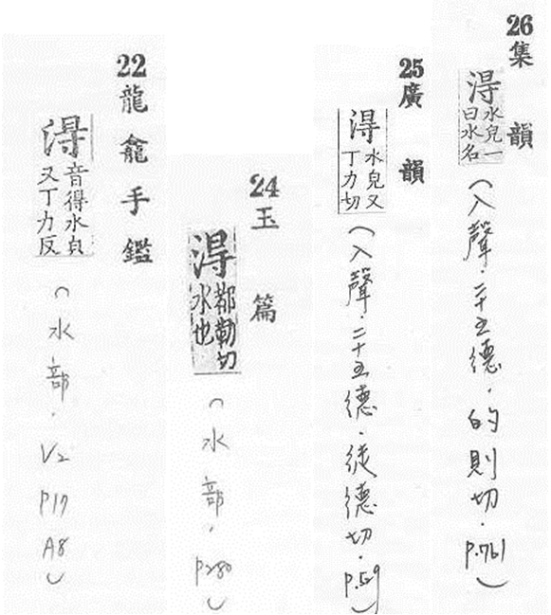 26集韻
淂
水皃一
曰水名
(入聲．二十五德．的則切．p.761)
25廣韻
淂
水皃又
丁力切
(入聲．二十五德．徒德切．p.529)
24玉篇
淂
都勒切
水也
(水部．p280)
22龍龕手鑑
淂
音得水貞
又丁力反
(水部．V2 p19 A8)